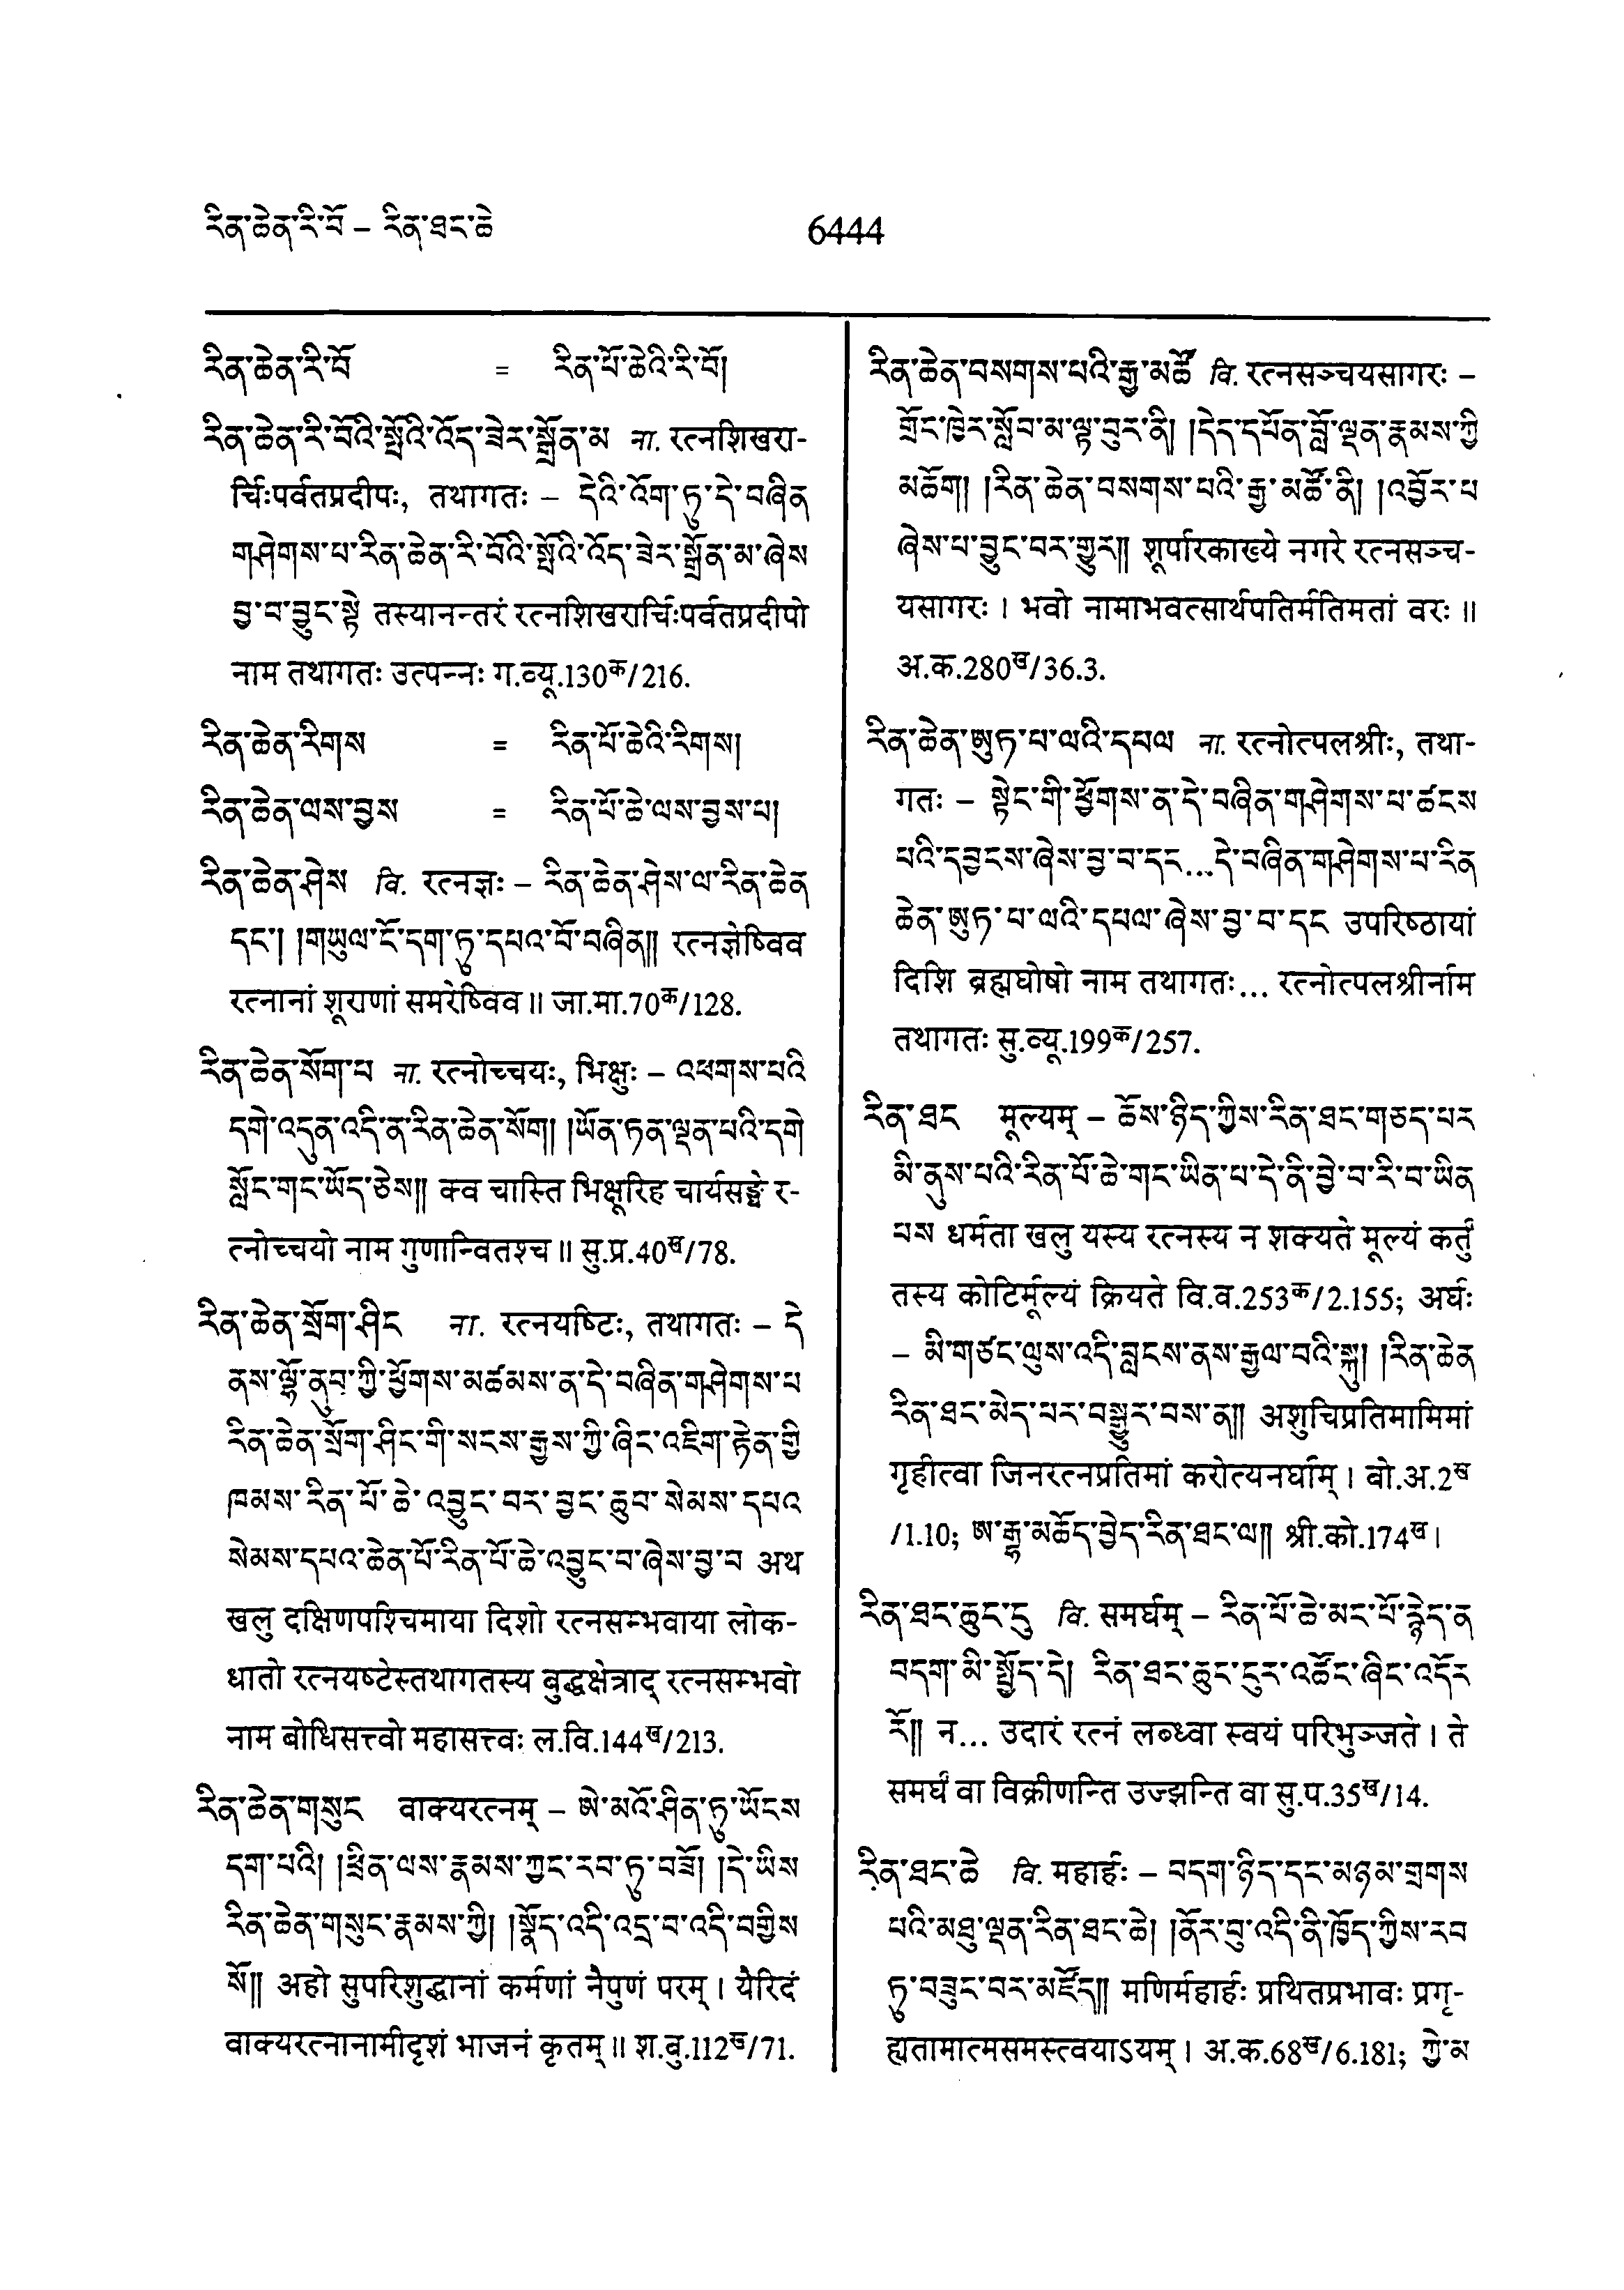 རིན་ཆེན་རི་བོ – རིན་ཐང་ཆེ
6444
རིན་ཆེན་རི་བོ = རིན་པོ་ཆེའི་རི་བོ།
རིན་ཆེན་རི་བོའི་སྤོའི་འོད་ཟེར་སྒྲོན་མ ना. रत्नशिखरा-
र्चिःपर्वतप्रदीपः, तथागतः – དེའི་འོག་ཏུ་དེ་བཞིན
གཤེགས་པ་རིན་ཆེན་རི་བོའི་སྤོའི་འོད་ཟེར་སྒྲོན་མ་ཞེས
བྱ་བ་བྱུང་སྟེ तस्यानन्तरं रत्नशिखरार्चिःपर्वतप्रदीपो
नाम तथागतः उत्पन्नः ग.व्यू.130क/216.
རིན་ཆེན་རིགས = རིན་པོ་ཆེའི་རིགས།
རིན་ཆེན་ལས་བྱས = རིན་པོ་ཆེ་ལས་བྱས་པ།
རིན་ཆེན་ཤེས वि. रत्नज्ञः – རིན་ཆེན་ཤེས་ལ་རིན་ཆེན
དང་། །གཡུལ་ངོ་དག་ཏུ་དཔའ་བོ་བཞིན༎ रत्नज्ञेष्विव
रत्नानां शूराणां समरेष्विव॥ जा.मा.70क/128.
རིན་ཆེན་སོག་པ ना. रत्नोच्चयः, भिक्षुः – འཕགས་པའི
དགེ་འདུན་འདི་ན་རིན་ཆེན་སོག། །ཡོན་ཏན་ལྡན་པའི་དགེ
སློང་གང་ཡོད་ཅེས༎ क्व चास्ति भिक्षूरिह चार्यसङ्घे र-
त्नोच्चयो नाम गुणान्वितश्च॥ सु.प्र.40ख/78.
རིན་ཆེན་སྲོག་ཤིང ना. रत्नयष्टिः, तथागतः – དེ
ནས་ལྷོ་ནུབ་ཀྱི་ཕྱོགས་མཚམས་ན་དེ་བཞིན་གཤེགས་པ
རིན་ཆེན་སྲོག་ཤིང་གི་སངས་རྒྱས་ཀྱི་ཞིང་འཇིག་རྟེན་གྱི
ཁམས་རིན་པོ་ཆེ་འབྱུང་བར་བྱང་ཆུབ་སེམས་དཔའ
སེམས་དཔའ་ཆེན་པོ་རིན་པོ་ཆེ་འབྱུང་བ་ཞེས་བྱ་བ अथ
खलु दक्षिणपश्चिमाया दिशो रत्नसम्भवाया लोक-
धातो रत्नयष्टेस्तथागतस्य बुद्धक्षेत्राद् रत्नसम्भवो
नाम बोधिसत्त्वो महासत्त्वः ल.वि.144ख/213.
རིན་ཆེན་གསུང वाक्यरत्नम् – ཨེ་མའོ་ཤིན་ཏུ་ཡོངས
དག་པའི། །ཕྲིན་ལས་རྣམས་ཀྱང་རབ་ཏུ་བཟོ། །དེ་ཡིས
རིན་ཆེན་གསུང་རྣམས་ཀྱི། །སྣོད་འདི་འདྲ་བ་འདི་བགྱིས
སོ༎ अहो सुपरिशुद्धानां कर्मणां नैपुणं परम्। यैरिदं
वाक्यरत्नानामीदृशं भाजनं कृतम्॥ श.बु.112ख/71.
རིན་ཆེན་བསགས་པའི་རྒྱ་མཚོ वि. रत्नसञ्चयसागरः –
གྲོང་ཁྱེར་སློབ་མ་ལྟ་བུར་ནི། །དེད་དཔོན་བློ་ལྡན་རྣམས་ཀྱི
མཆོག། །རིན་ཆེན་བསགས་པའི་རྒྱ་མཚོ་ནི། །འབྱོར་པ
ཞེས་པ་བྱུང་བར་གྱུར༎ शूर्पारकाख्ये नगरे रत्नसञ्च-
यसागरः। भवो नामाभवत्सार्थपतिर्मतिमतां वरः॥
अ.क.280ख/36.3.
རིན་ཆེན་ཨུཏ་པ་ལའི་དཔལ ना. रत्नोत्पलश्रीः, तथा-
गतः – སྟེང་གི་ཕྱོགས་ན་དེ་བཞིན་གཤེགས་པ་ཚངས
པའི་དབྱངས་ཞེས་བྱ་བ་དང...དེ་བཞིན་གཤེགས་པ་རིན
ཆེན་ཨུཏ་པ་ལའི་དཔལ་ཞེས་བྱ་བ་དང उपरिष्ठायां
दिशि ब्रह्मघोषो नाम तथागतः... रत्नोत्पलश्रीर्नाम
तथागतः सु.व्यू.199क/257.
རིན་ཐང मूल्यम् – ཆོས་ཉིད་ཀྱིས་རིན་ཐང་གཅད་པར
མི་ནུས་པའི་རིན་པོ་ཆེ་གང་ཡིན་པ་དེ་ནི་བྱེ་བ་རི་བ་ཡིན
པས धर्मता खलु यस्य रत्नस्य न शक्यते मूल्यं कर्तुं
तस्य कोटिर्मूल्यं क्रियते वि.व.253क/2.155; अर्घः
– མི་གཙང་ལུས་འདི་བླངས་ནས་རྒྱལ་བའི་སྐུ། །རིན་ཆེན
རིན་ཐང་མེད་པར་བསྒྱུར་བས་ན༎ अशुचिप्रतिमामिमां
गृहीत्वा जिनरत्नप्रतिमां करोत्यनर्घाम्। बो.अ.2ख
/1.10; ཨ་རྒྷ་མཆོད་བྱེད་རིན་ཐང་ལ༎ श्री.को.174ख।
རིན་ཐང་ཆུང་ངུ वि. समर्घम् – རིན་པོ་ཆེ་མང་པོ་རྙེད་ན
བདག་མི་སྤྱོད་དེ། རིན་ཐང་ཆུང་ངུར་འཚོང་ཞིང་འདོར
རོ༎ न... उदारं रत्नं लब्ध्वा स्वयं परिभुञ्जते। ते
समर्घं वा विक्रीणन्ति उज्झन्ति वा सु.प.35ख/14.
རིན་ཐང་ཆེ वि. महार्हः – བདག་ཉིད་དང་མཉམ་གྲགས
པའི་མཐུ་ལྡན་རིན་ཐང་ཆེ། །ནོར་བུ་འདི་ནི་ཁྱོད་ཀྱིས་རབ
ཏུ་བཟུང་བར་མཛོད༎ मणिर्महार्हः प्रथितप्रभावः प्रगृ-
ह्यतामात्मसमस्त्वयाऽयम्। अ.क.68ख/6.181; ཀྱེ་མ